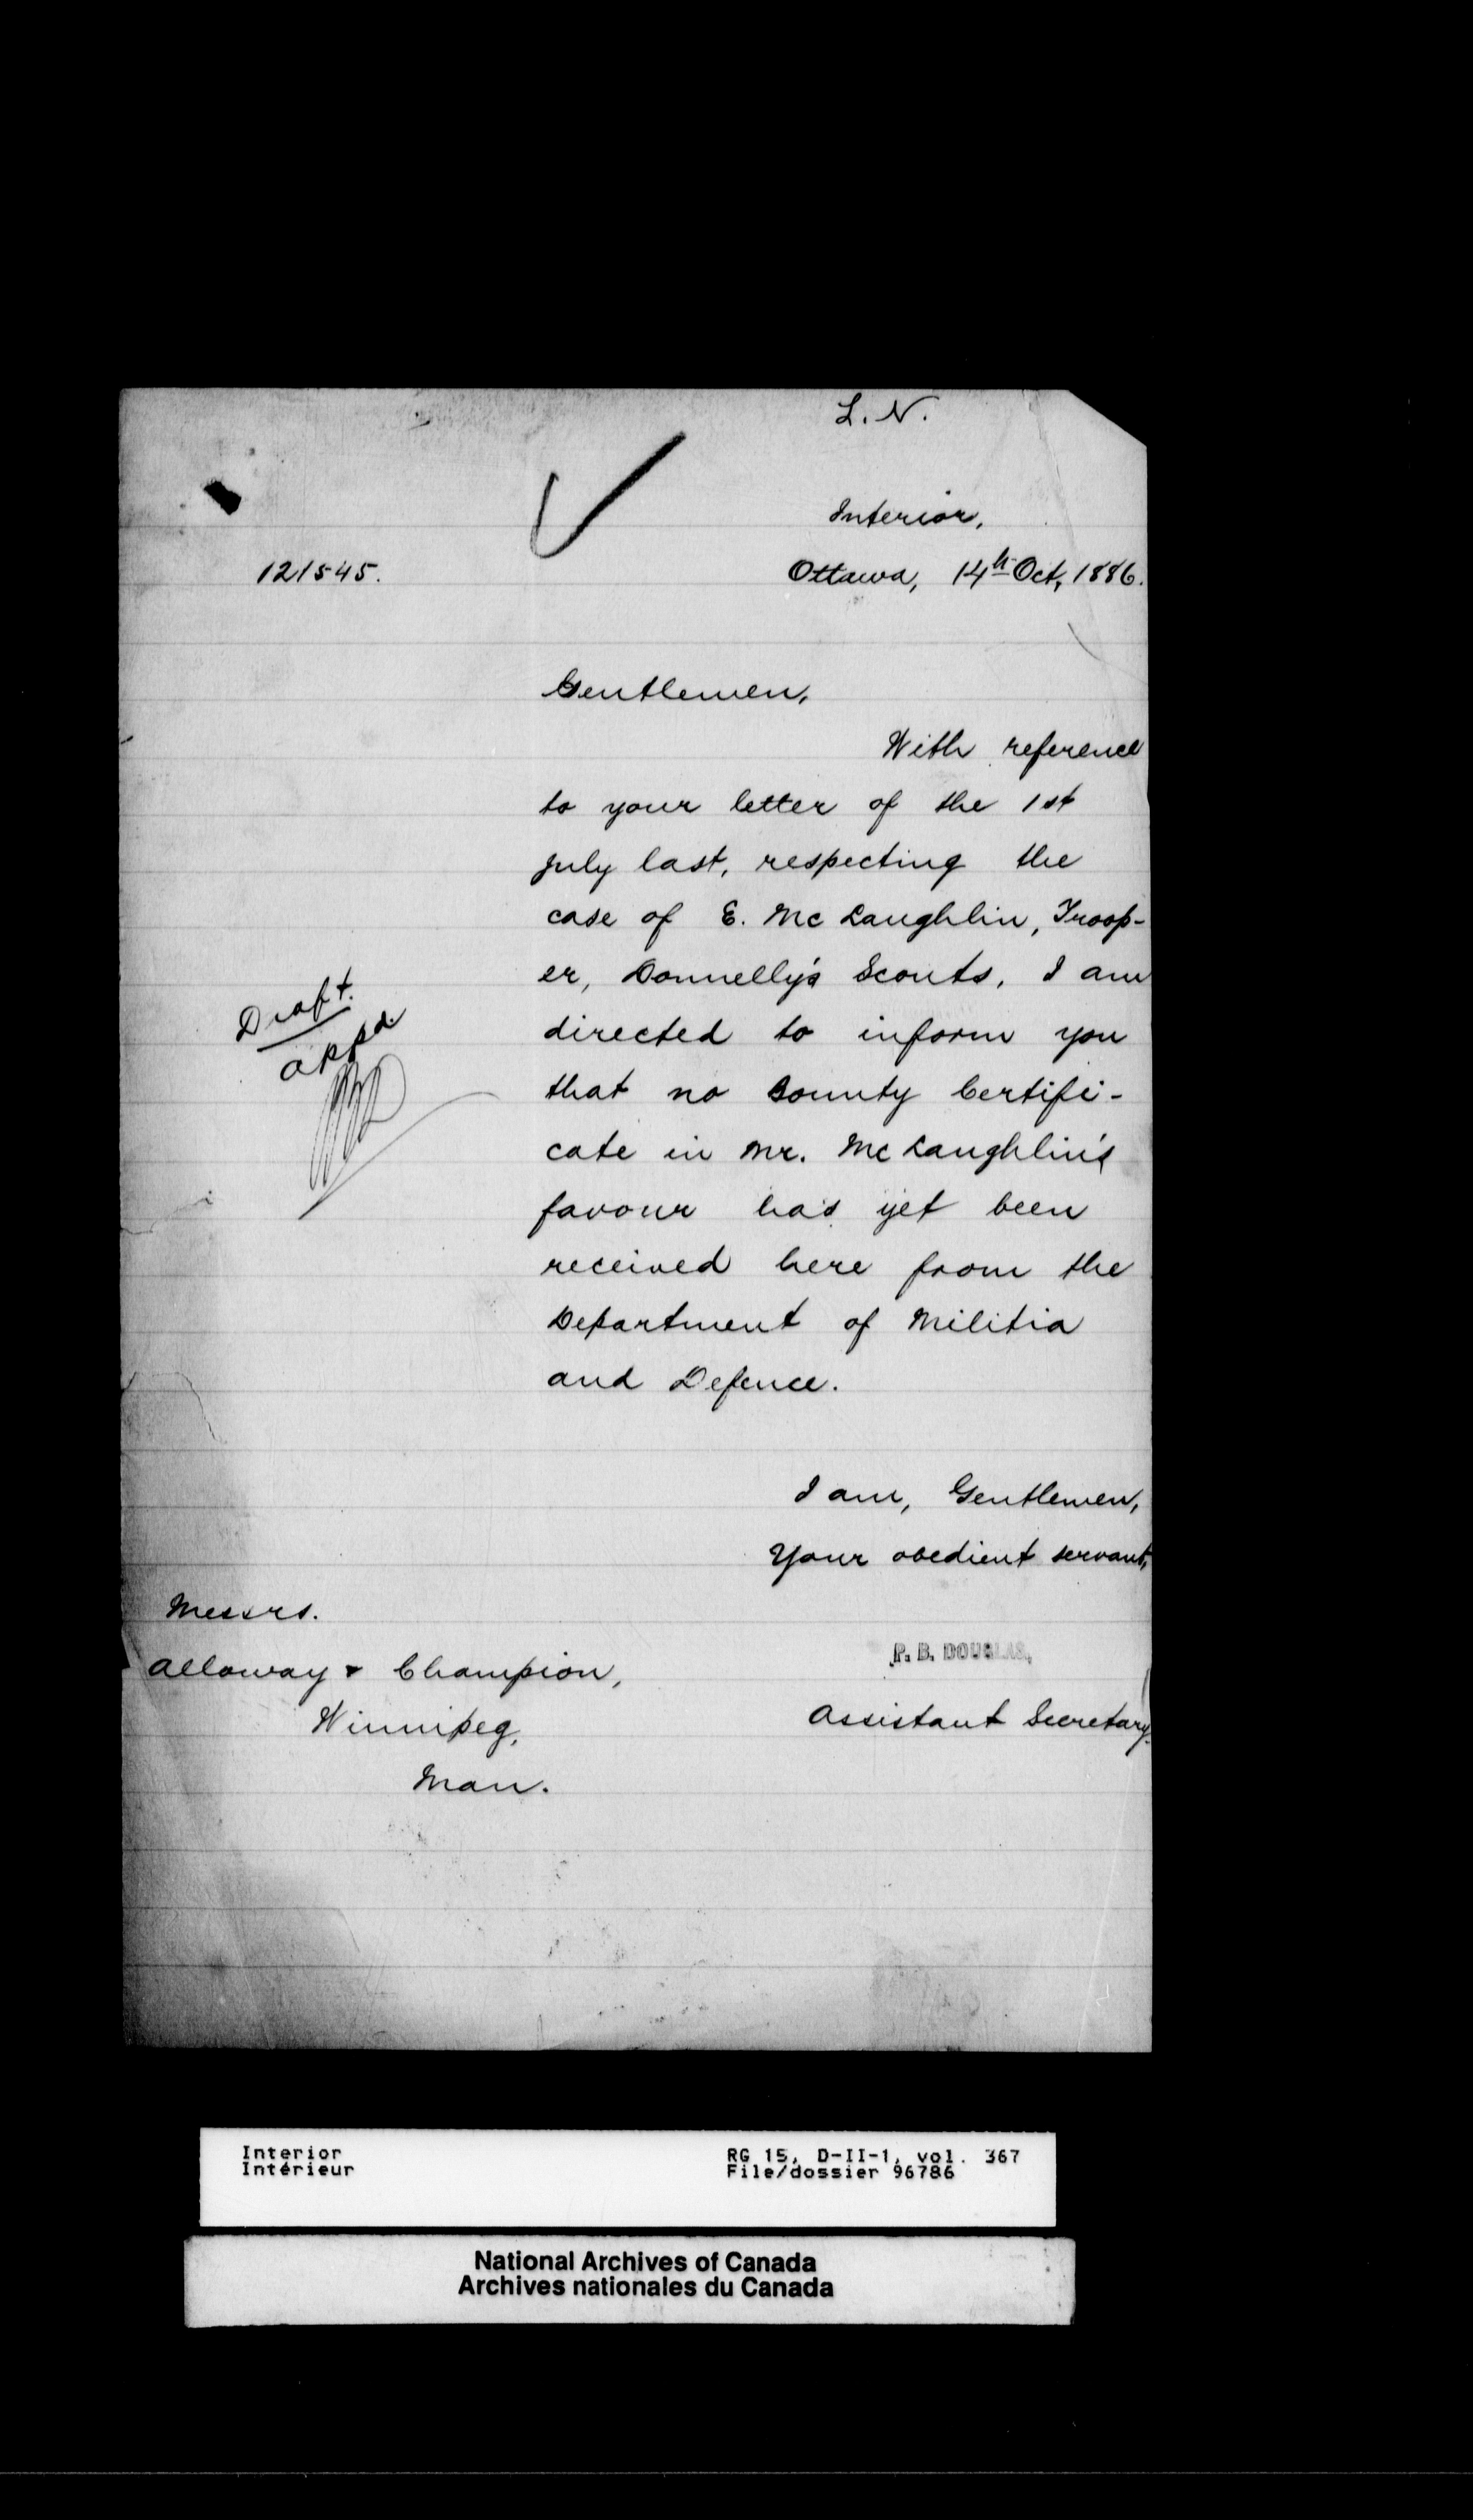 L. N.
Interior,
121545.
Ottawa, 14th Oct, 1886.
Gentlemen,
With reference
to your letter of the 1st
July last, respecting the
case of E. McLaughlin, Troop-
er, Donnelly's Scouts, I am
directed to inform you
that no Bounty Certifi-
cate in Mr. McLaughlin's
favour has yet been
received here from the
Department of Militia
and Defence.
Draft.
appd.
I am, Gentlemen,
Your obedient servant,
Messrs.
Alloway & Champion,
Winnipeg,
Man.
P. B. DOUGLAS,
Assistant Secretary.
Interior
Intérieur
RG 15, D-II-1, vol. 367
File/dossier 96786
National Archives of Canada
Archives nationales du Canada